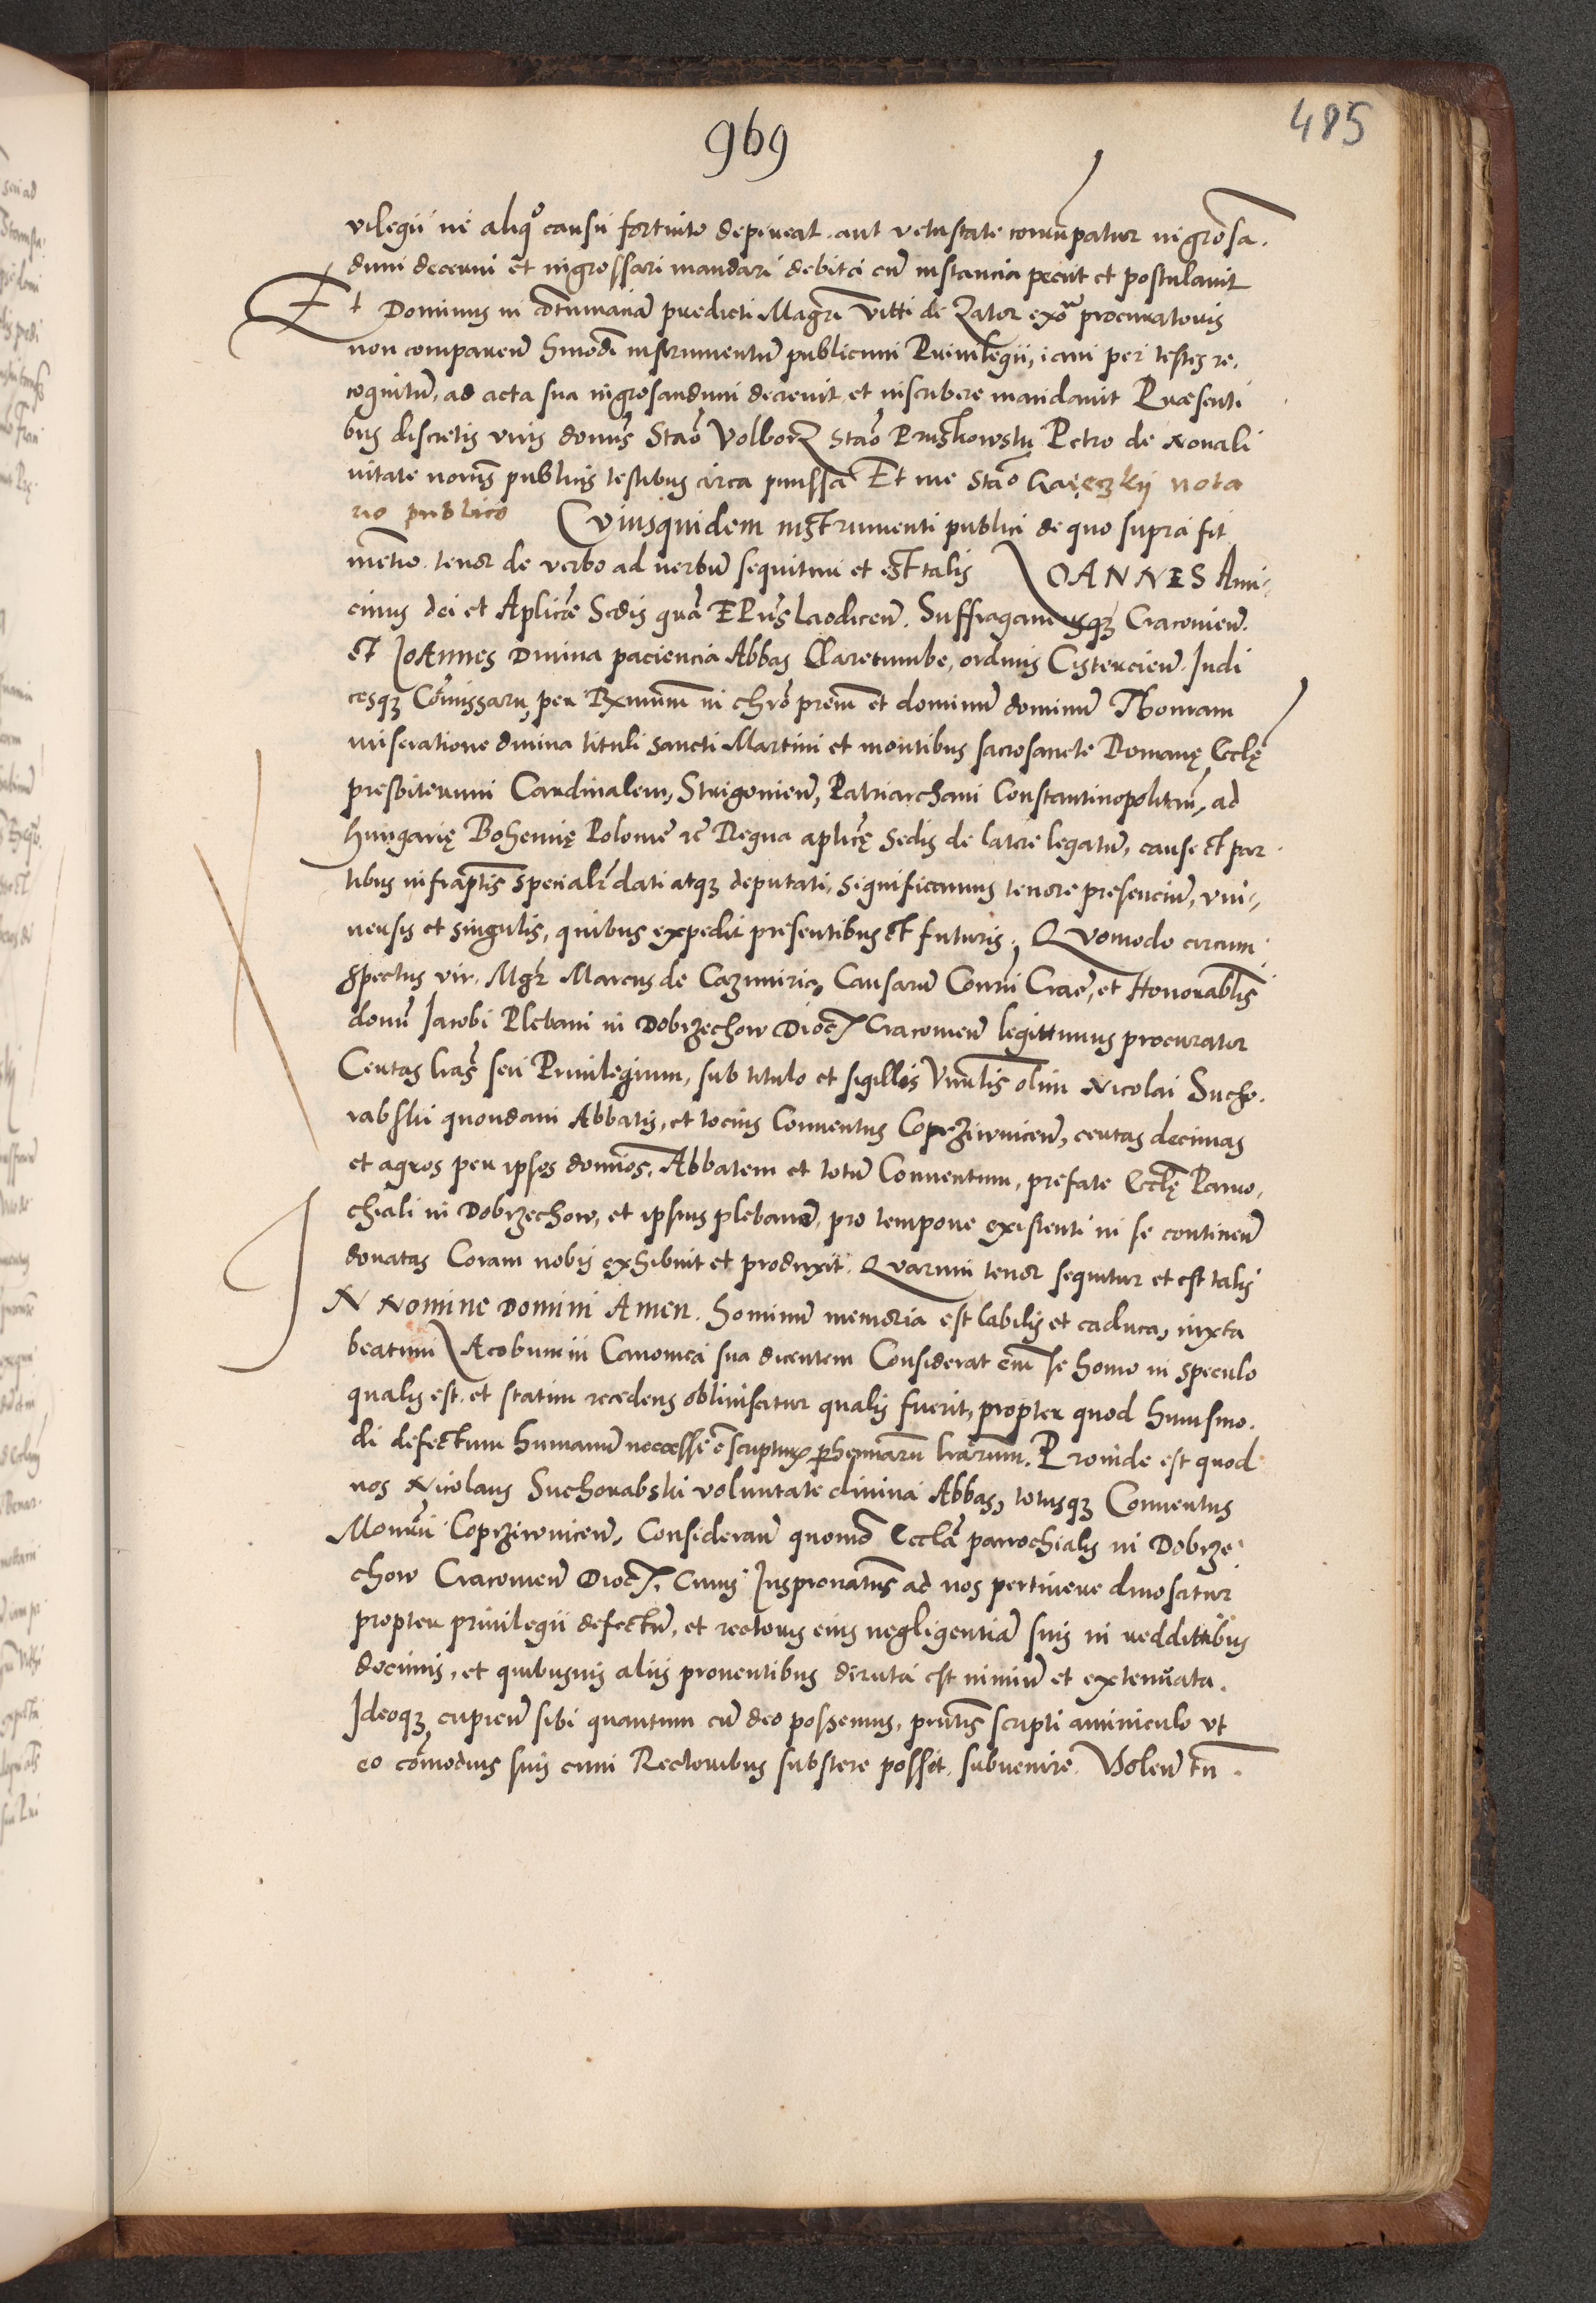 969
485
vilegii ne aliqº causu fortuito depereat aut vetustate corrũpatur ingrosa.
dum decerni et ingrossari mandari debita cũ instancia peciit et postulavit
Et Dominus in ↄtumaciã predicti Magri Vitti de Zator exoã procuratoris
non comparen̄ hmõdi instrumentũ publicum Privilegii, iam per testes re,
cognitũ, ad acta sua ingrosandum decrevit et inscribere mandavit Præsenti
bus discretis viris domis Stão Volborz Stão Pruskowski Petro de Novali
vitate notris publicis testibus circa premissa Et me Stão nota
rio publico Cuiusquidem instrumenti publici de quo supra fit
mentio. tenor de verbo ad verbũ sequitur et est talis IOANNES Ami,
cinus dei et Aplicæ Sedis grã EPus Laodicen̄. Suffraganeusqz Cracovien̄.
et Joannes Divina paciencia Abbas Claretumbe, ordinis Cistercien̄. Judi
cesqz Cõmissarii, per Rxmum in chrõ prem et dominũ dominũ Thomam
miseratione divina tituli sancti Martini et montibus sacrosancte Romanę Ecclę
presbiterum Cardinalem, Strigonien̄, Patriarcham Constantinopolitan̄, ad
Hungarię Bohemię Polonie rc̃ Regna aplicę Sedis de latere legatũ, cause et par
tibus infraptis specialr dati atqz deputati, significamus tenore presenciũ, vni,
versis et singulis, quibus expedit presentibus et futuris. Quomodo circum
spectus vir. Mgr Marcus de Cazimiria, Causarũ Conrii Crac̃, et Honorablis
domi Jacobi Plebani in Dobrzechow Dioc̃ Cracovien̄ legittimus procurator
Certas lras seu Privilegium, sub titulo et sigillis Vnrabilis olim Nicolai Sucho.
rabski quondam Abbatis, et tocius Conventus Coprziwnicen̄, certas decimas
et agros per ipsos dominos, Abbatem et totũ Conventum, prefate Ecclę Parro,
chiali in Dobrzechow, et ipsius plebano, pro tempore existenti in se continen̄
donatas Coram nobis exhibuit et produxit. Quarum tenor sequitur et est talis
IN Nomine Domini Amen. Hominũ memoria est labilis et caduca, iuxta
beatum Jacobum in Canonica sua dicentem Considerat em̃ se homo in speculo
qualis est. et statim recedens obliviscitur qualis fuerit, propter quod huiusmo.
di defectum humanũ necesse ē scripturᵃ perhenniarũ lrarum. Proinde est quod
nos Nicolaus Suchorabski voluntate divina Abbas, totusqz Conventus
Monrii Coprziwnicen̄, Consideran̄ quomõ Ecclã parrochialis in Dobrze
chow Cracovien̄ Dioc̃. Cuius Juspronatus ad nos pertinere dinoscitur
propter privilegii defectũ, et rectoris eius negligentiã suis in reddittibus
decimis, et quibusvis aliis proventibus diruta est nimiũ et extenuata.
Ideoqz cupien̄ sibi quantum cũ deo possemus, pntis scripti aminiculo vt
eo cõmodius suis cum Rectoribus substere possit. subvenire. Volen̄ tn̄.